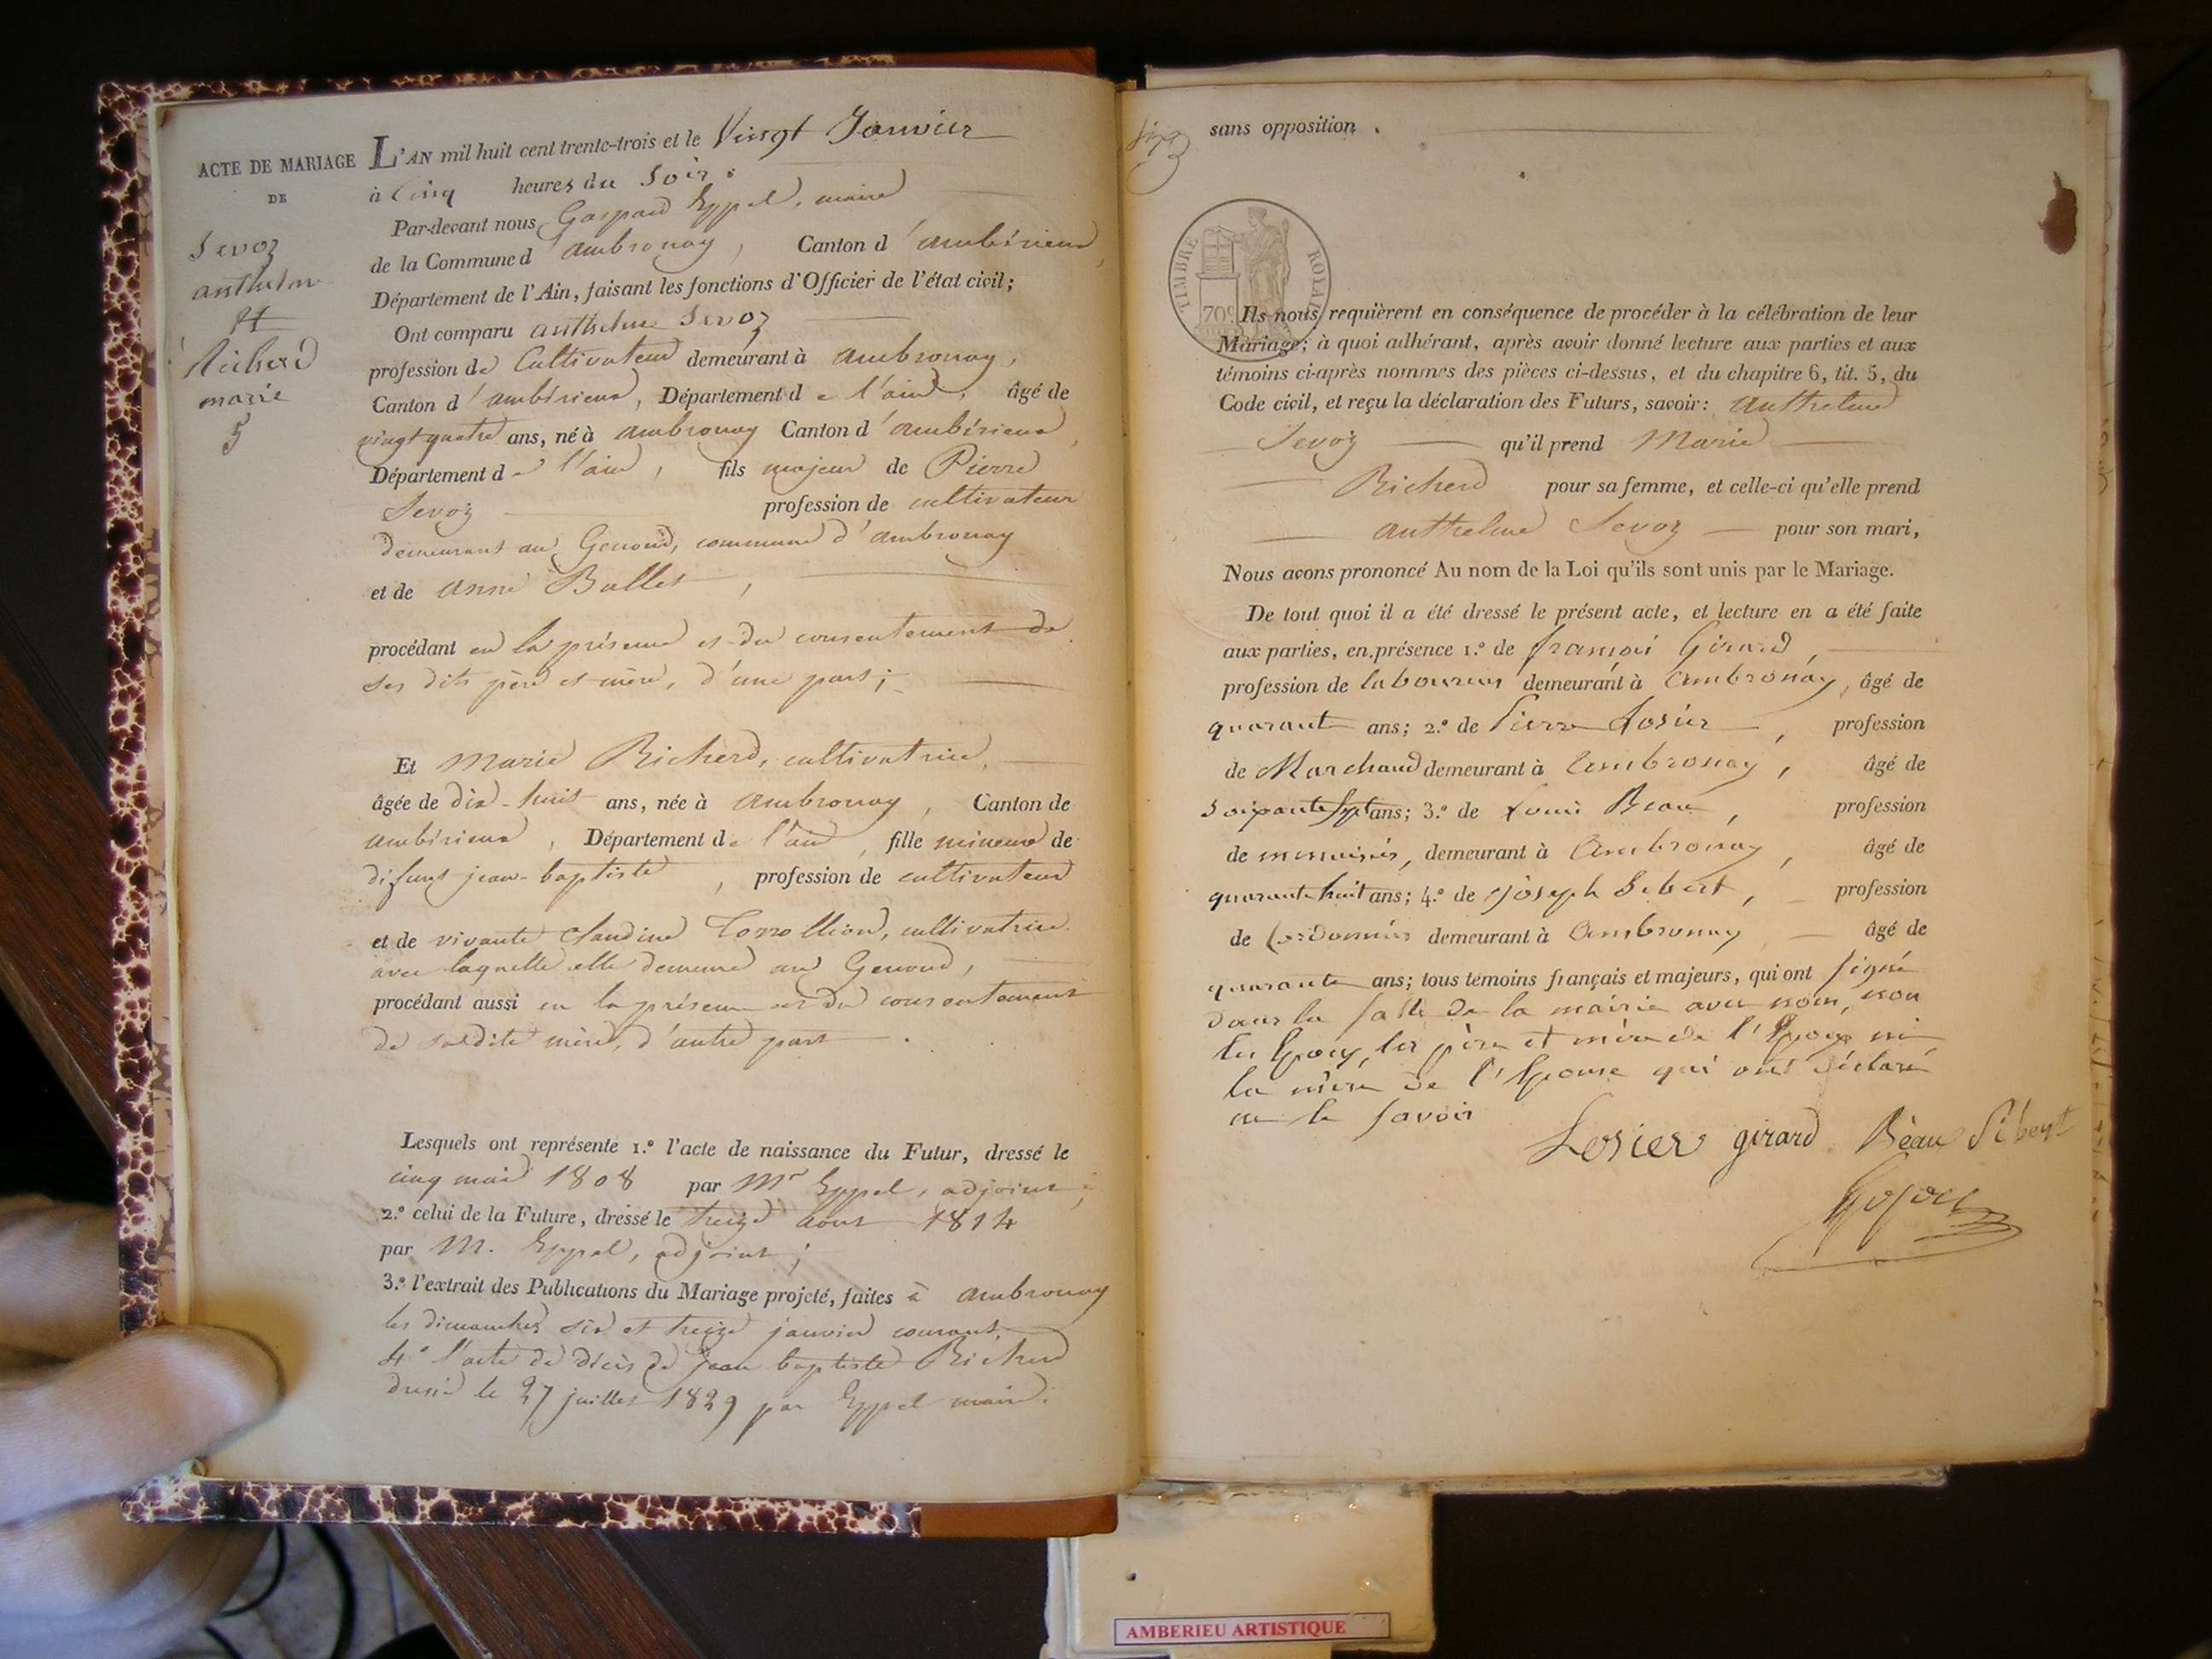 ACTE DE MARIAGE
DE
Sevoz
anthelme
et
Richerd
marie
5
L'AN mil huit cent trente-trois et le Vingt Janvier
à Cinq heures du Soir.
Par-devant nous Gaspard Eppel, maire
de la Commune d'ambronay, Canton d'ambérieux,
Département de l'Ain, faisant les fonctions d'Officier de l'état civil;
Ont comparu anthelme Sevoz
profession de Cultivateur demeurant à ambronay,
Canton d'ambérieux, Département de l'ain, âgé de
vingt quatre ans, né à ambronay Canton d'ambérieux,
Département de l'ain, fils majeur de Pierre
Sevoz profession de cultivateur
demeurant au Genoud, commune d'ambronay
et de anne Ballet,
procédant en la présence et du consentement de
ses dits père et mère, d'une part;
Et Marie Richerd, cultivatrice,
âgée de dix-huit ans, née à ambronay, Canton de
ambérieux, Département de l'ain, fille mineure de
défunt jean-baptiste, profession de cultivateur
et de vivante Claudine, cultivatrice
avec laquelle elle demeure au Genoud,
procédant aussi en la présence et du consentement
de sadite mère, d'autre part.
Lesquels ont représenté 1.º l'acte de naissance du Futur, dressé le
cinq mai 1808 par Mr Eppel, adjoint;
2.º celui de la Future, dressé le treize aout 1814
par M. Eppel, adjoint;
3.º l'extrait des Publications du Mariage projeté, faites à ambronay
les dimanches six et treize janvier courant,
4º l'acte de décès de jean baptiste Richerd
dressé le 27 juillet 1829 par Eppel maire.
sans opposition.
TIMBRE ROYAL
70c
Ils nous requièrent en conséquence de procéder à la célébration de leur
Mariage; à quoi adhérant, après avoir donné lecture aux parties et aux
témoins ci-après nommés des pièces ci-dessus, et du chapitre 6, tit. 5, du
Code civil, et reçu la déclaration des Futurs, savoir: Anthelme
Sevoz qu'il prend Marie
Richerd pour sa femme, et celle-ci qu'elle prend
anthelme Sevoz pour son mari,
Nous avons prononcé Au nom de la Loi qu'ils sont unis par le Mariage.
De tout quoi il a été dressé le présent acte, et lecture en a été faite
aux parties, en présence 1.º de françois Girard,
profession de laboureur demeurant à Ambronay, âgé de
quarante ans; 2.º de Pierre Losier, profession
de Marchand demeurant à Ambronay, âgé de
soixante sept ans; 3.º de Louis Beau, profession
de menuisier, demeurant à Ambronay, âgé de
quarante huit ans; 4.º de Joseph Sebert, profession
de Cordonnier demeurant à Ambronay, âgé de
quarante ans; tous témoins français et majeurs, qui ont signé
dans la salle de la mairie avec nous, non
les Epoux, les père et mère de l'Epoux ni
la mère de l'Epouse qui ont déclaré
ne le savoir
Losier girard Bèau Sibert
AMBERIEU ARTISTIQUE